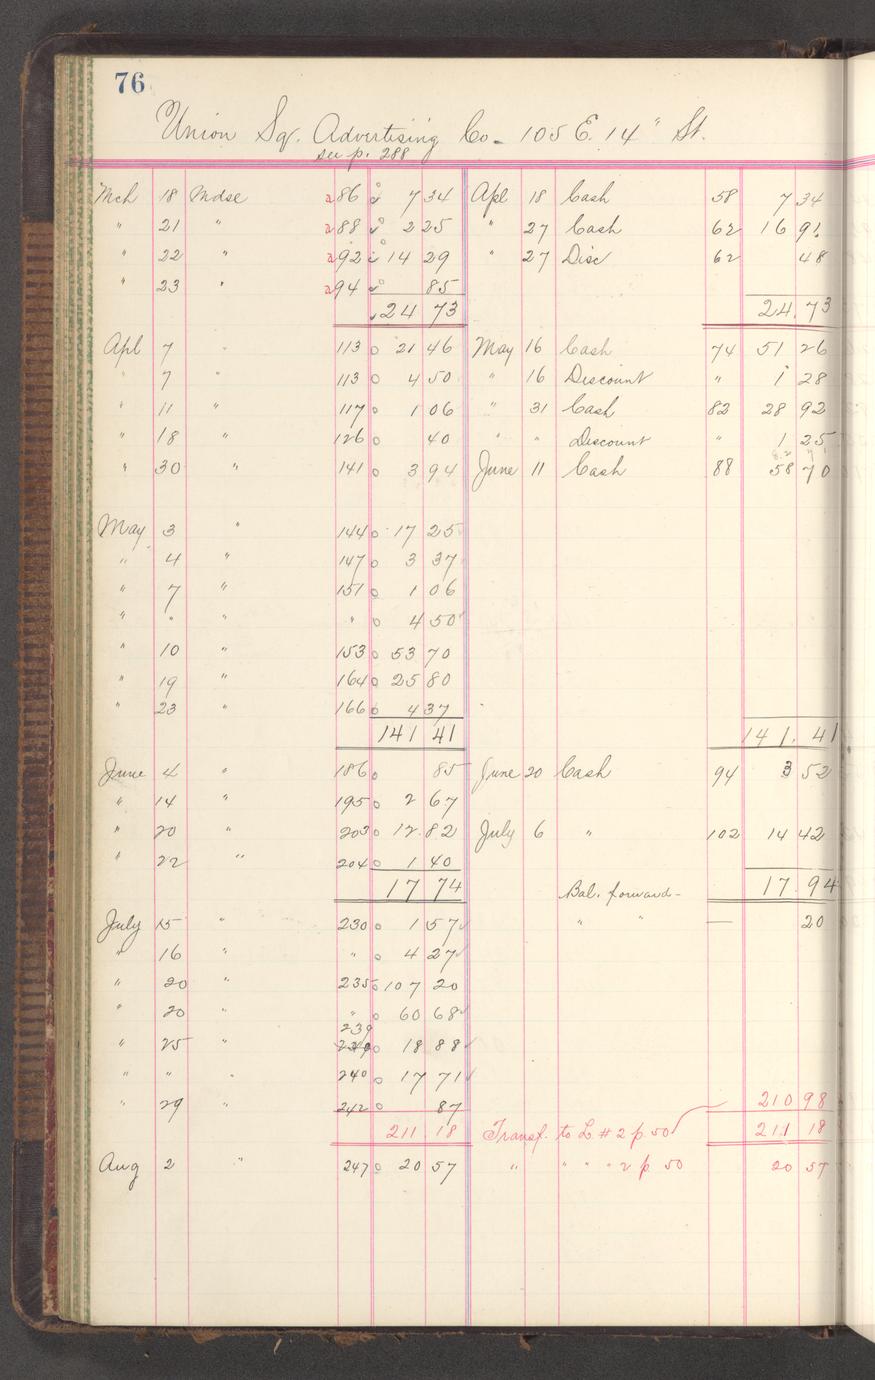 76
Union Sq. Advertising Co. 105 E. 14" St.
see p. 288
Mch 18 Mdse a86 7 34 Apl 18 Cash 58 7 34
" 21 " a88 2 25 " 27 Cash 62 16 91
" 22 " a92 14 29 " 27 Disc 62 48
" 23 " a94 85
24 73 24.73
Apl 7 " 113 21 46 May 16 Cash 74 51 26
" 7 " 113 4 50 " 16 Discount " 1 28
" 11 " 117 1 06 " 31 Cash 82 28 92
" 18 " 126 40 " " Discount " 1 25
" 30 " 141 3 94 June 11 Cash 88 58 70
May 3 " 144 17 25
" 4 " 147 3 37
" 7 " 151 1 06
" " " " 4 50
" 10 " 153 53 70
" 19 " 164 25 80
" 23 " 166 4 37
141 41 141.41
June 4 " 186 85 June 20 Cash 94 3 52
" 14 " 195 2 67
" 20 " 203 12.82 July 6 " 102 14 42
" 22 " 204 1 40
17 74 Bal. forward- 17.94
July 15 " 230 1 57 " " — 20
" 16 " " 4 27
" 20 " 235 107 20
" 20 " " 60 68
239
" 25 " 18 88
" " " 240 17 71
" 29 " 242 87 210 98
211.18 Transf. to L # 2 p. 50 211 18
Aug 2 " 247 20 57 " " " " 2 p. 50 20 57